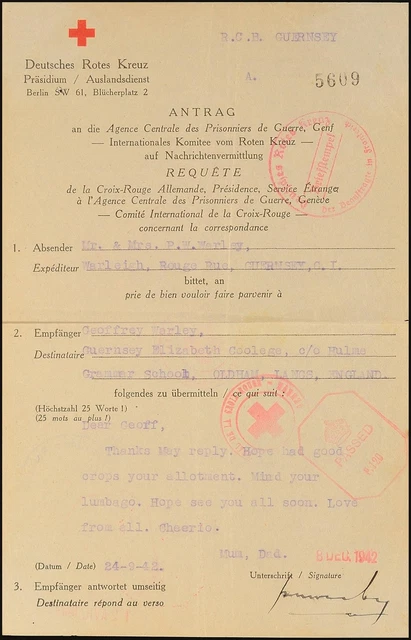 R.C.B. GUERNSEY
Deutsches Rotes Kreuz
Präsidium / Auslandsdienst
Berlin SW 61, Blücherplatz 2
A.
5609
ANTRAG
an die Agence Centrale des Prisonniers de Guerre, Genf
— Internationales Komitee vom Roten Kreuz —
auf Nachrichtenvermittlung
REQUÊTE
de la Croix-Rouge Allemande, Présidence, Service Étranger
à l'Agence Centrale des Prisonniers de Guerre, Genève
— Comité International de la Croix-Rouge —
concernant la correspondance
1. Absender Mr. & Mrs. P.W.Warley,
Expéditeur Warleigh, Rouge Rue, GUERNSEY,C.I.
bittet, an
prie de bien vouloir faire parvenir à
2. Empfänger Geoffrey Warley,
Destinataire Guernsey Elizabeth Coolege, c/o Hulme
Grammar School, OLDHAM, LANCS, ENGLAND.
folgendes zu übermitteln / ce qui suit:
(Höchstzahl 25 Worte!)
(25 mots au plus!)
Dear Geoff,
Thanks May reply. Hope had good
crops your allotment. Mind your
lumbago. Hope see you all soom. Love
from all. Cheerio.
Mum, Dad.
PASSED
8 DEC 1942
(Datum / Date) 24-9-42.
Unterschrift / Signature
3. Empfänger antwortet umseitig
Destinataire répond au verso